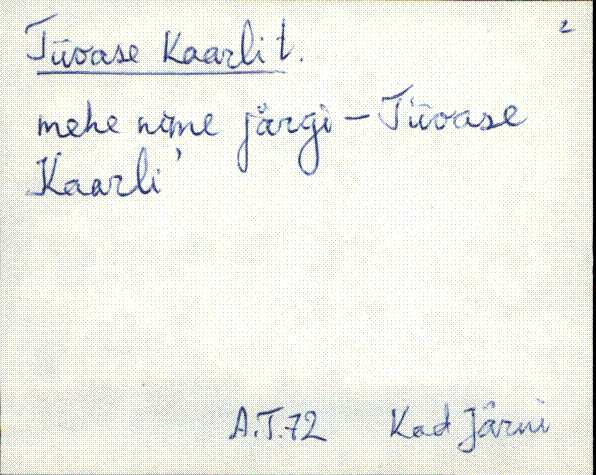 2
Tüvase Kaarli t.
mehe nime järgi – Tüvase
Kaarli'
A.T.72 Kad Järni